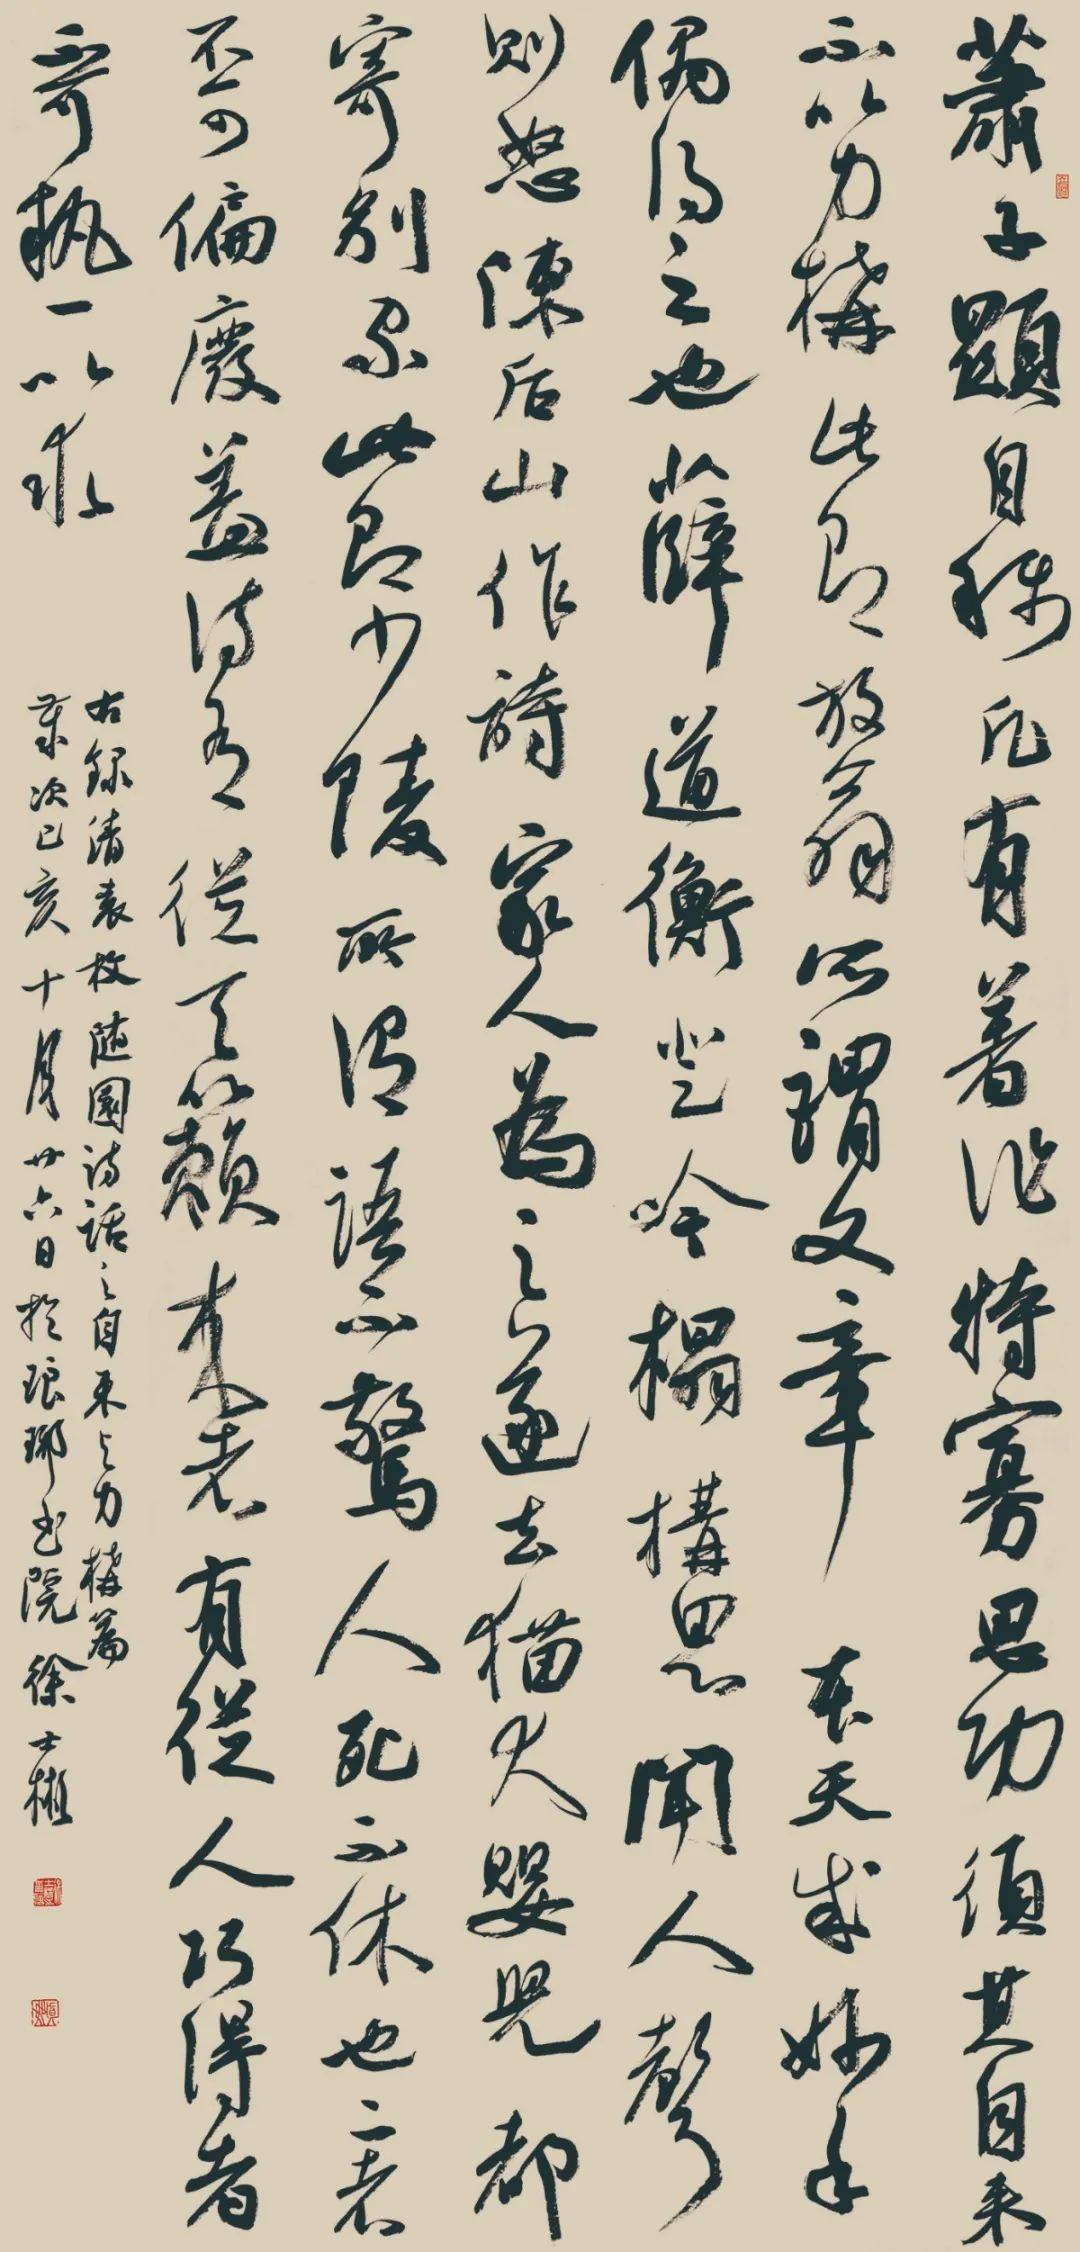 蕭子顯自稱凡有著作特寡思功須其自来
不以力構此即放翁所謂文章本天成妙手
偶得之也薛道衡登吟榻構思聞人聲
則怒陳后山作詩家人為之逐去猫犬嬰兒都
寄别家此即少陵所謂語不驚人死不休也二者
不可偏廢蓋詩有從天籟来者有從人巧得者
不可執一以求
右録清袁枚随園詩話之自来与力構篇
歲次己亥十月廿六日於琅琊書院徐士彬